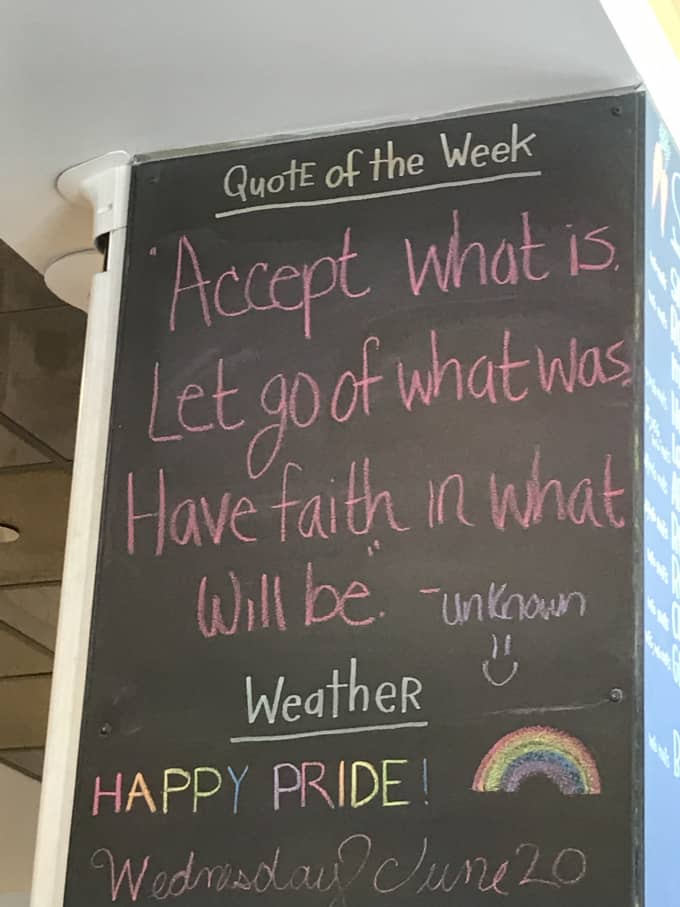 Quote of the Week
"Accept what is.
Let go of what was.
Have faith in what
Will be." -unknown
Weather
HAPPY PRIDE!
Wednesday June 20